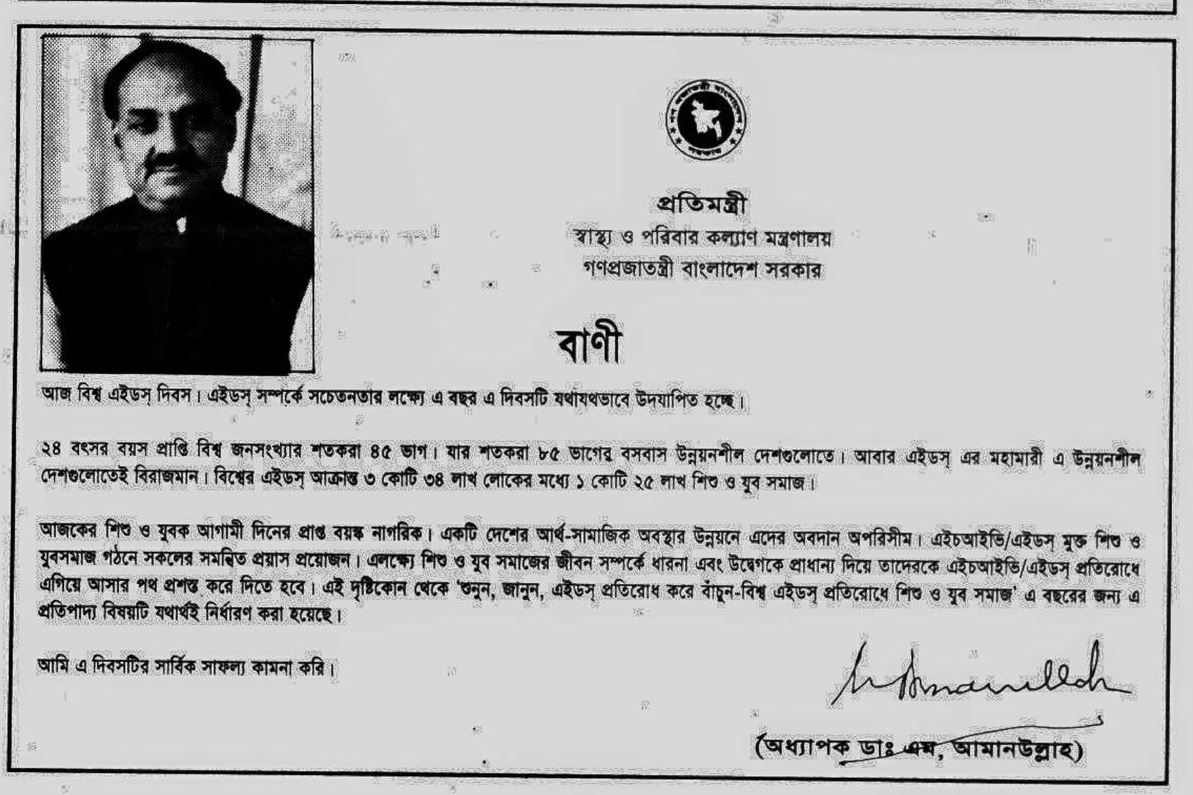 গণ প্রজাতন্ত্রী বাংলাদেশ
সরকার
প্রতিমন্ত্রী
স্বাস্থ্য ও পরিবার কল্যাণ মন্ত্রণালয়
গণপ্রজাতন্ত্রী বাংলাদেশ সরকার
বাণী
আজ বিশ্ব এইডস্ দিবস। এইডস্ সম্পর্কে সচেতনতার লক্ষ্যে এ বছর এ দিবসটি যথাযথভাবে উদযাপিত হচ্ছে।
২৪ বৎসর বয়স প্রাপ্তি বিশ্ব জনসংখ্যার শতকরা ৪৫ ভাগ। যার শতকরা ৮৫ ভাগের বসবাস উন্নয়নশীল দেশগুলোতে। আবার এইডস্ এর মহামারী এ উন্নয়নশীল
দেশগুলোতেই বিরাজমান। বিশ্বের এইডস্ আক্রান্ত ৩ কোটি ৩৪ লাখ লোকের মধ্যে ১ কোটি ২৫ লাখ শিশু ও যুব সমাজ।
আজকের শিশু ও যুবক আগামী দিনের প্রাপ্ত বয়স্ক নাগরিক। একটি দেশের আর্থ-সামাজিক অবস্থার উন্নয়নে এদের অবদান অপরিসীম। এইচআইভি/এইডস্ মুক্ত শিশু ও
যুবসমাজ গঠনে সকলের সমন্বিত প্রয়াস প্রয়োজন। এলক্ষ্যে শিশু ও যুব সমাজের জীবন সম্পর্কে ধারনা এবং উদ্বেগকে প্রাধান্য দিয়ে তাদেরকে এইচআইভি/এইডস্ প্রতিরোধে
এগিয়ে আসার পথ প্রশস্ত করে দিতে হবে। এই দৃষ্টিকোন থেকে ‘শুনুন, জানুন, এইডস্ প্রতিরোধ করে বাঁচুন-বিশ্ব এইডস্ প্রতিরোধে শিশু ও যুব সমাজ’ এ বছরের জন্য এ
প্রতিপাদ্য বিষয়টি যথার্থই নির্ধারণ করা হয়েছে।
আমি এ দিবসটির সার্বিক সাফল্য কামনা করি।
M Amanullah
(অধ্যাপক ডাঃ এম, আমানউল্লাহ)